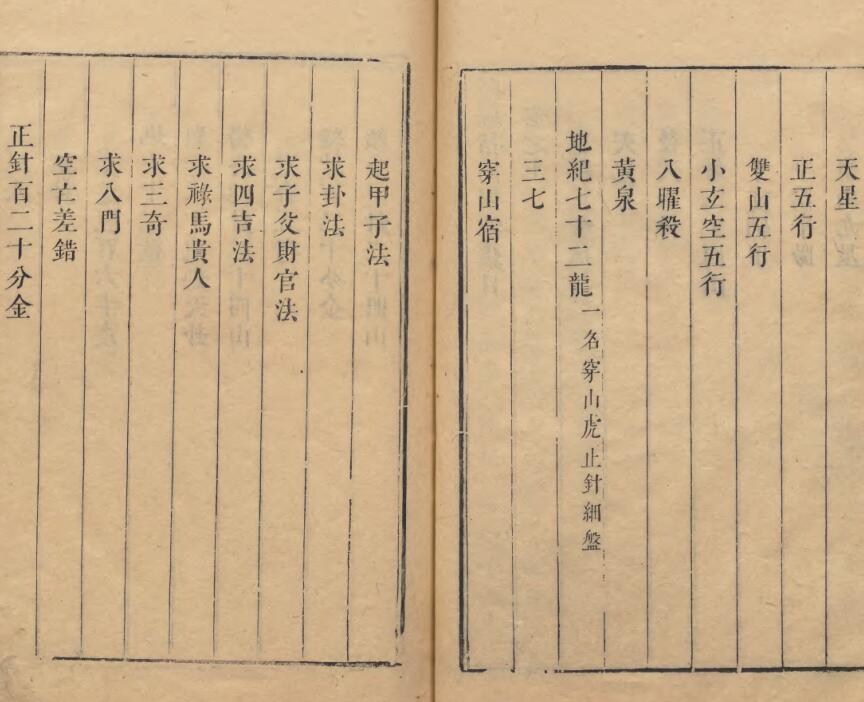 天星
正五行
雙山五行
小玄空五行
八曜殺
黃泉
地紀七十二龍一名穿山虎止針細盤
三七
穿山宿
起甲子法
求卦法
求子父財官法
求四吉法
求祿馬貴人
求三奇
求八門
空亡差錯
正針百二十分金